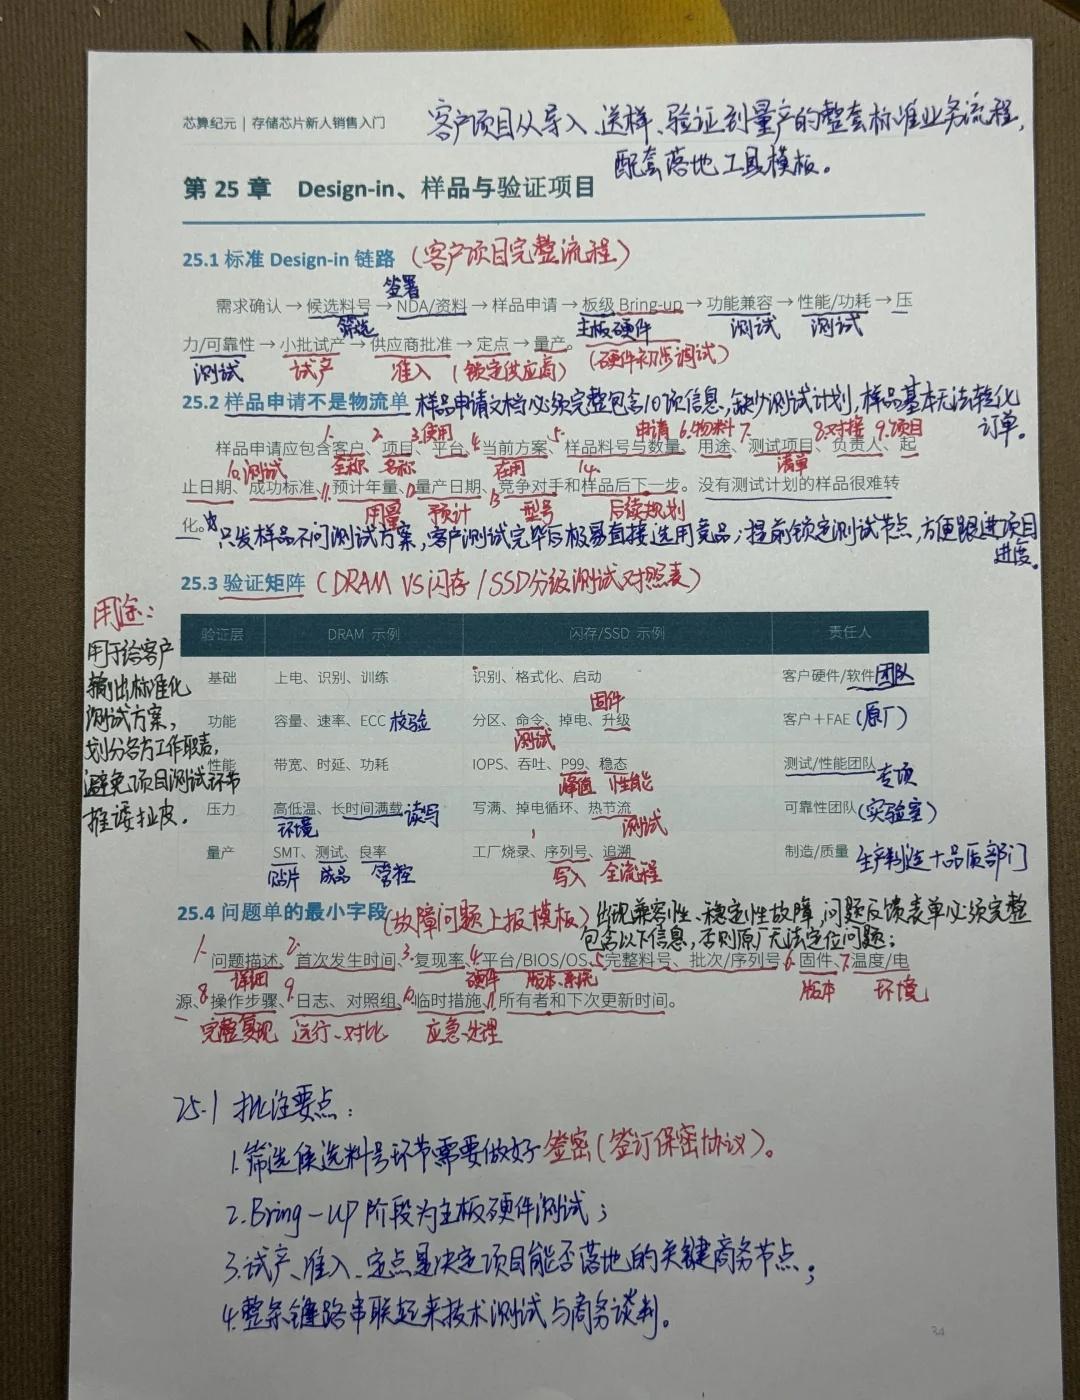 芯算纪元 | 存储芯片新人销售入门
客户项目从导入、送样、验证到量产的整套标准业务流程,
配套落地工具模板。
第 25 章 Design-in、样品与验证项目
25.1 标准 Design-in 链路 (客户项目完整流程)
签署
需求确认 → 候选料号 → NDA/资料 → 样品申请 → 板级 Bring-up → 功能兼容 → 性能/功耗 → 压
筛选 主板硬件 测试 测试
力/可靠性 → 小批试产 → 供应商批准 → 定点 → 量产。 (硬件初步调试)
测试 试产 准入 (锁定供应商)
25.2 样品申请不是物流单 样品申请文档必须完整包含10项信息,缺少测试计划,样品基本无法转化
订单。
1. 2. 3.使用 4. 5. 申请 6.物料 7. 8.对接 9.项目
样品申请应包含客户、项目、平台、当前方案、样品料号与数量、用途、测试项目、负责人、起
10.测试 全称 名称 在用 14. 清单
止日期、成功标准、11.预计年量、量产日期、13竞争对手和样品后下一步。没有测试计划的样品很难转
用量 预计 型号 后续规划
化。只发样品不问测试方案,客户测试完毕后极易直接选用竞品;提前锁定测试节点,方便跟进项目
进度。
25.3 验证矩阵 (DRAM VS 闪存/SSD分级测试对照表)
用途:
用于给客户
输出标准化
测试方案,
划分各方工作职责,
避免项目测试环节
推诿扯皮。
验证层 DRAM 示例 闪存/SSD 示例 责任人
基础 上电、识别、训练 识别、格式化、启动 客户硬件/软件团队
固件
功能 容量、速率、ECC校验 分区、命令、掉电、升级 客户+FAE (原厂)
测试
性能 带宽、时延、功耗 IOPS、吞吐、P99、稳态 测试/性能团队专项
峰值 性能
压力 高低温、长时间满载读写 写满、掉电循环、热节流 可靠性团队(实验室)
环境 测试
量产 SMT、测试、良率 工厂烧录、序列号、追溯 制造/质量 生产制造+品质部门
贴片 成品 管控 写入 全流程
25.4 问题单的最小字段(故障问题上报模板) 出现兼容性、稳定性故障,问题反馈表单必须完整
包含以下信息,否则原厂无法定位问题;
1.问题描述、2.首次发生时间、3.复现率、4.平台/BIOS/OS、5.完整料号、批次/序列号、6.固件、7.温度/电
详细 硬件 版本、系统 版本 环境
源、8.操作步骤、9.日志、对照组、10.临时措施、11.所有者和下次更新时间。
完整复现 运行、对比 应急处理
25.1 批注要点:
1.筛选候选料号环节需要做好签密(签订保密协议)。
2.Bring-up 阶段为主板硬件测试;
3.试产、准入、定点是决定项目能否落地的关键商务节点;
4.整条链路串联起来技术测试与商务谈判。
34